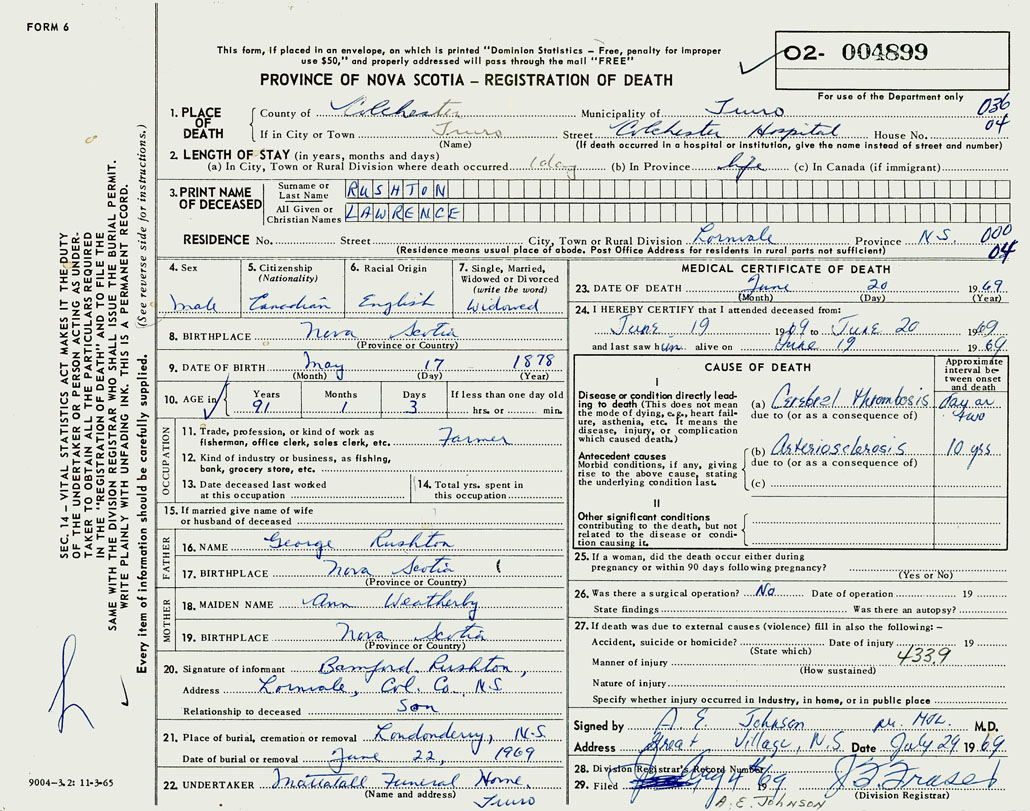 FORM 6
This form, if placed in an envelope, on which is printed "Dominion Statistics – Free, penalty for improper
use $50," and properly addressed will pass through the mail "FREE"
PROVINCE OF NOVA SCOTIA – REGISTRATION OF DEATH
02- 004899
For use of the Department only
1. PLACE OF DEATH County of Colchester Municipality of Truro 036
If in City or Town Truro Street Colchester Hospital House No. 04
(Name) (If death occurred in a hospital or institution, give the name instead of street and number)
2. LENGTH OF STAY (in years, months and days)
(a) In City, Town or Rural Division where death occurred 1 day (b) In Province life (c) In Canada (if immigrant)
3. PRINT NAME OF DECEASED Surname or Last Name RUSHTON
All Given or Christian Names LAWRENCE
RESIDENCE No. Street City, Town or Rural Division Lornvale Province N.S. 000
(Residence means usual place of abode. Post Office Address for residents in rural parts not sufficient) 04
4. Sex male
5. Citizenship (Nationality) Canadian
6. Racial Origin English
7. Single, Married, Widowed or Divorced (write the word) Widowed
8. BIRTHPLACE Nova Scotia
(Province or Country)
9. DATE OF BIRTH May 17 1878
(Month) (Day) (Year)
10. AGE in Years Months Days If less than one day old
91 1 3 hrs. or min.
OCCUPATION
11. Trade, profession, or kind of work as fisherman, office clerk, sales clerk, etc. Farmer
12. Kind of industry or business, as fishing, bank, grocery store, etc.
13. Date deceased last worked at this occupation
14. Total yrs. spent in this occupation
15. If married give name of wife or husband of deceased
FATHER
16. NAME George Rushton
17. BIRTHPLACE Nova Scotia
(Province or Country)
MOTHER
18. MAIDEN NAME Ann Weatherby
19. BIRTHPLACE Nova Scotia
(Province or Country)
20. Signature of informant Bamford Rushton,
Address Lornvale, Col. Co., N.S.
Relationship to deceased Son
21. Place of burial, cremation or removal Londonderry, N.S.
Date of burial or removal June 22, 1969
22. UNDERTAKER Mattatall Funeral Home,
(Name and address) Truro
MEDICAL CERTIFICATE OF DEATH
23. DATE OF DEATH June 20 1969
(Month) (Day) (Year)
24. I HEREBY CERTIFY that I attended deceased from:
June 19 1969 to June 20 1969
and last saw him alive on June 19 1969
CAUSE OF DEATH
Approximate interval between onset and death
I
Disease or condition directly leading to death (This does not mean the mode of dying, e.g., heart failure, asthenia, etc. It means the disease, injury, or complication which caused death.)
(a) Cerebral Thrombosis day or two
due to (or as a consequence of)
Antecedent causes
Morbid conditions, if any, giving rise to the above cause, stating the underlying condition last.
(b) Arteriosclerosis 10 yrs
due to (or as a consequence of)
(c)
II
Other significant conditions contributing to the death, but not related to the disease or condition causing it.
25. If a woman, did the death occur either during
pregnancy or within 90 days following pregnancy?
(Yes or No)
26. Was there a surgical operation? No Date of operation 19
State findings Was there an autopsy?
27. If death was due to external causes (violence) fill in also the following: –
Accident, suicide or homicide? Date of injury 19
(State which)
Manner of injury 433.9
(How sustained)
Nature of injury
Specify whether injury occurred in Industry, in home, or in public place
Signed by A. E. Johnson M.D.
Address Great Village, N.S. Date July 29 1969
28. Division Registrar's Record Number
29. Filed Aug 4 1969 J B Fraser
(Division Registrar)
A. E. JOHNSON
SEC. 14 – VITAL STATISTICS ACT MAKES IT THE DUTY
OF THE UNDERTAKER OR PERSON ACTING AS UNDERTAKER
TO OBTAIN ALL THE PARTICULARS REQUIRED
IN THE "REGISTRATION OF DEATH" AND TO FILE THE
SAME WITH THE DIVISION REGISTRAR WHO SHALL ISSUE THE BURIAL PERMIT.
WRITE PLAINLY WITH UNFADING INK. THIS IS A PERMANENT RECORD.
Every item of information should be carefully supplied. (See reverse side for instructions.)
9004-3.2: 11-3-65